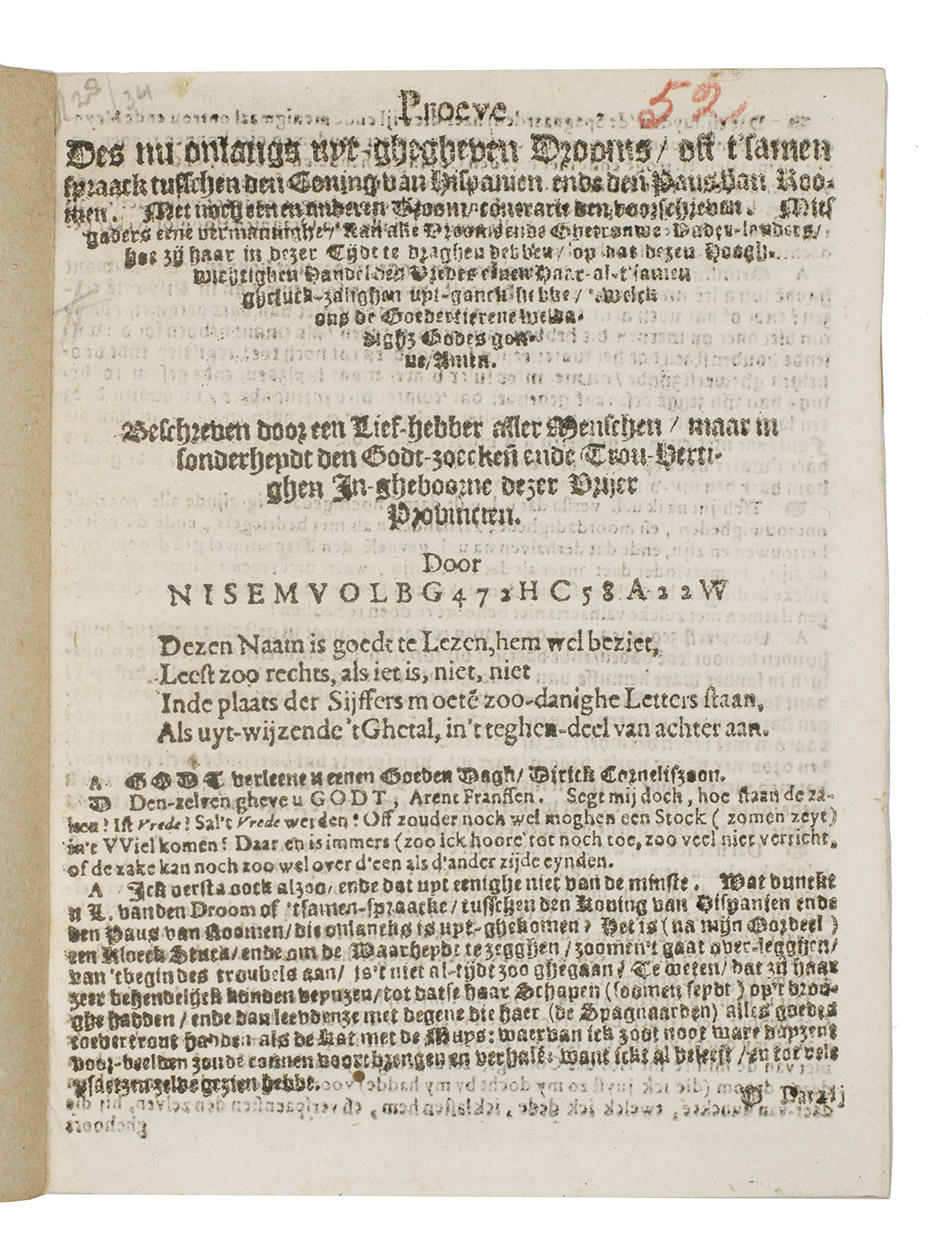 28/34
52
Proeve
Des nu onlangs uyt-ghegheven Drooms / oft t'samen
spraack tusschen den Coning van Hispanien ende den Paus van Roo-
men. Met noch eenen anderen Droom / contrarie den voorschreven. Mits
gaders eene vermaninghe / aan alle Vrome ende Ghetrouwe Vader-landers /
hoe zij haar in dezer Tijdt te draghen hebben / op dat dezen Hoogh-
wichtighen Handel des Vredes eenen Haar-al-t'samen
gheluck-zalighen uyt-ganck hebbe / 'twelck
ons de Goedertierene welda-
dighz Godes gon-
ne / Amen.
Beschreven door een Lief-hebber aller Menschen / maar in
sonderheydt den Godt-zoeckeñ ende Trou-Herti-
ghen In-gheboorne dezer Vrijer
Provincien.
Door
NISEMVOLBG472HC58A22W
Dezen Naam is goedt te Lezen, hem wel beziet,
Leest zoo rechts, als iet is, niet, niet
Inde plaats der Sijffers moetē zoo-danighe Letters staan,
Als uyt-wijzende 't Ghetal, in't teghen-deel van achter aan.
A GODT verleene u eenen Goeden Dagh / Dirick Corneliszoon.
D Den-zelven gheve u GODT, Arent Franssen. Segt mij doch, hoe staan de za-
ken? Ist Vrede? Sal't Vrede werden? Off zouder noch wel moghen een Stock (zomen zeyt)
in't VViel komen? Daar en is immers (zoo ick hoore) tot noch toe, zoo veel niet verricht,
of de zake kan noch zoo wel over d'een als d'ander zijde eynden.
A Ick versta oock alzoo / ende dat uyt eenighe niet van de minste. Wat duncke
u L. vanden Droom of 'tsamen-spraacke / tusschen den Koning van Hispanien ende
den Paus van Roomen / die onlancks is uyt-ghekomen? Het is (na mijn Oordeel)
een Kloeck Stuck / ende om de Waarheydt te zegghen / zoomen't gaat over-legghen /
van 'tbegin des troubels aan / is't niet al-tijdt zoo ghegaan? Te weten / dat zij haar
zeer behendelijck konden veynzen / tot datse haar Schapen (soomen seydt) op't droo-
ghe hadden / ende dan leevdenze met degene die haer (de Spagnaarden) alles goedes
toevertrout hadden als de Kat met de Muys: waer van ick zoot noot ware duyzent
voor-beelden zoude connen voortbrengen en verhalē: want ickt al beleeft / en tot vele
plaetzen zelve gezien hebbe.
D Dat zij